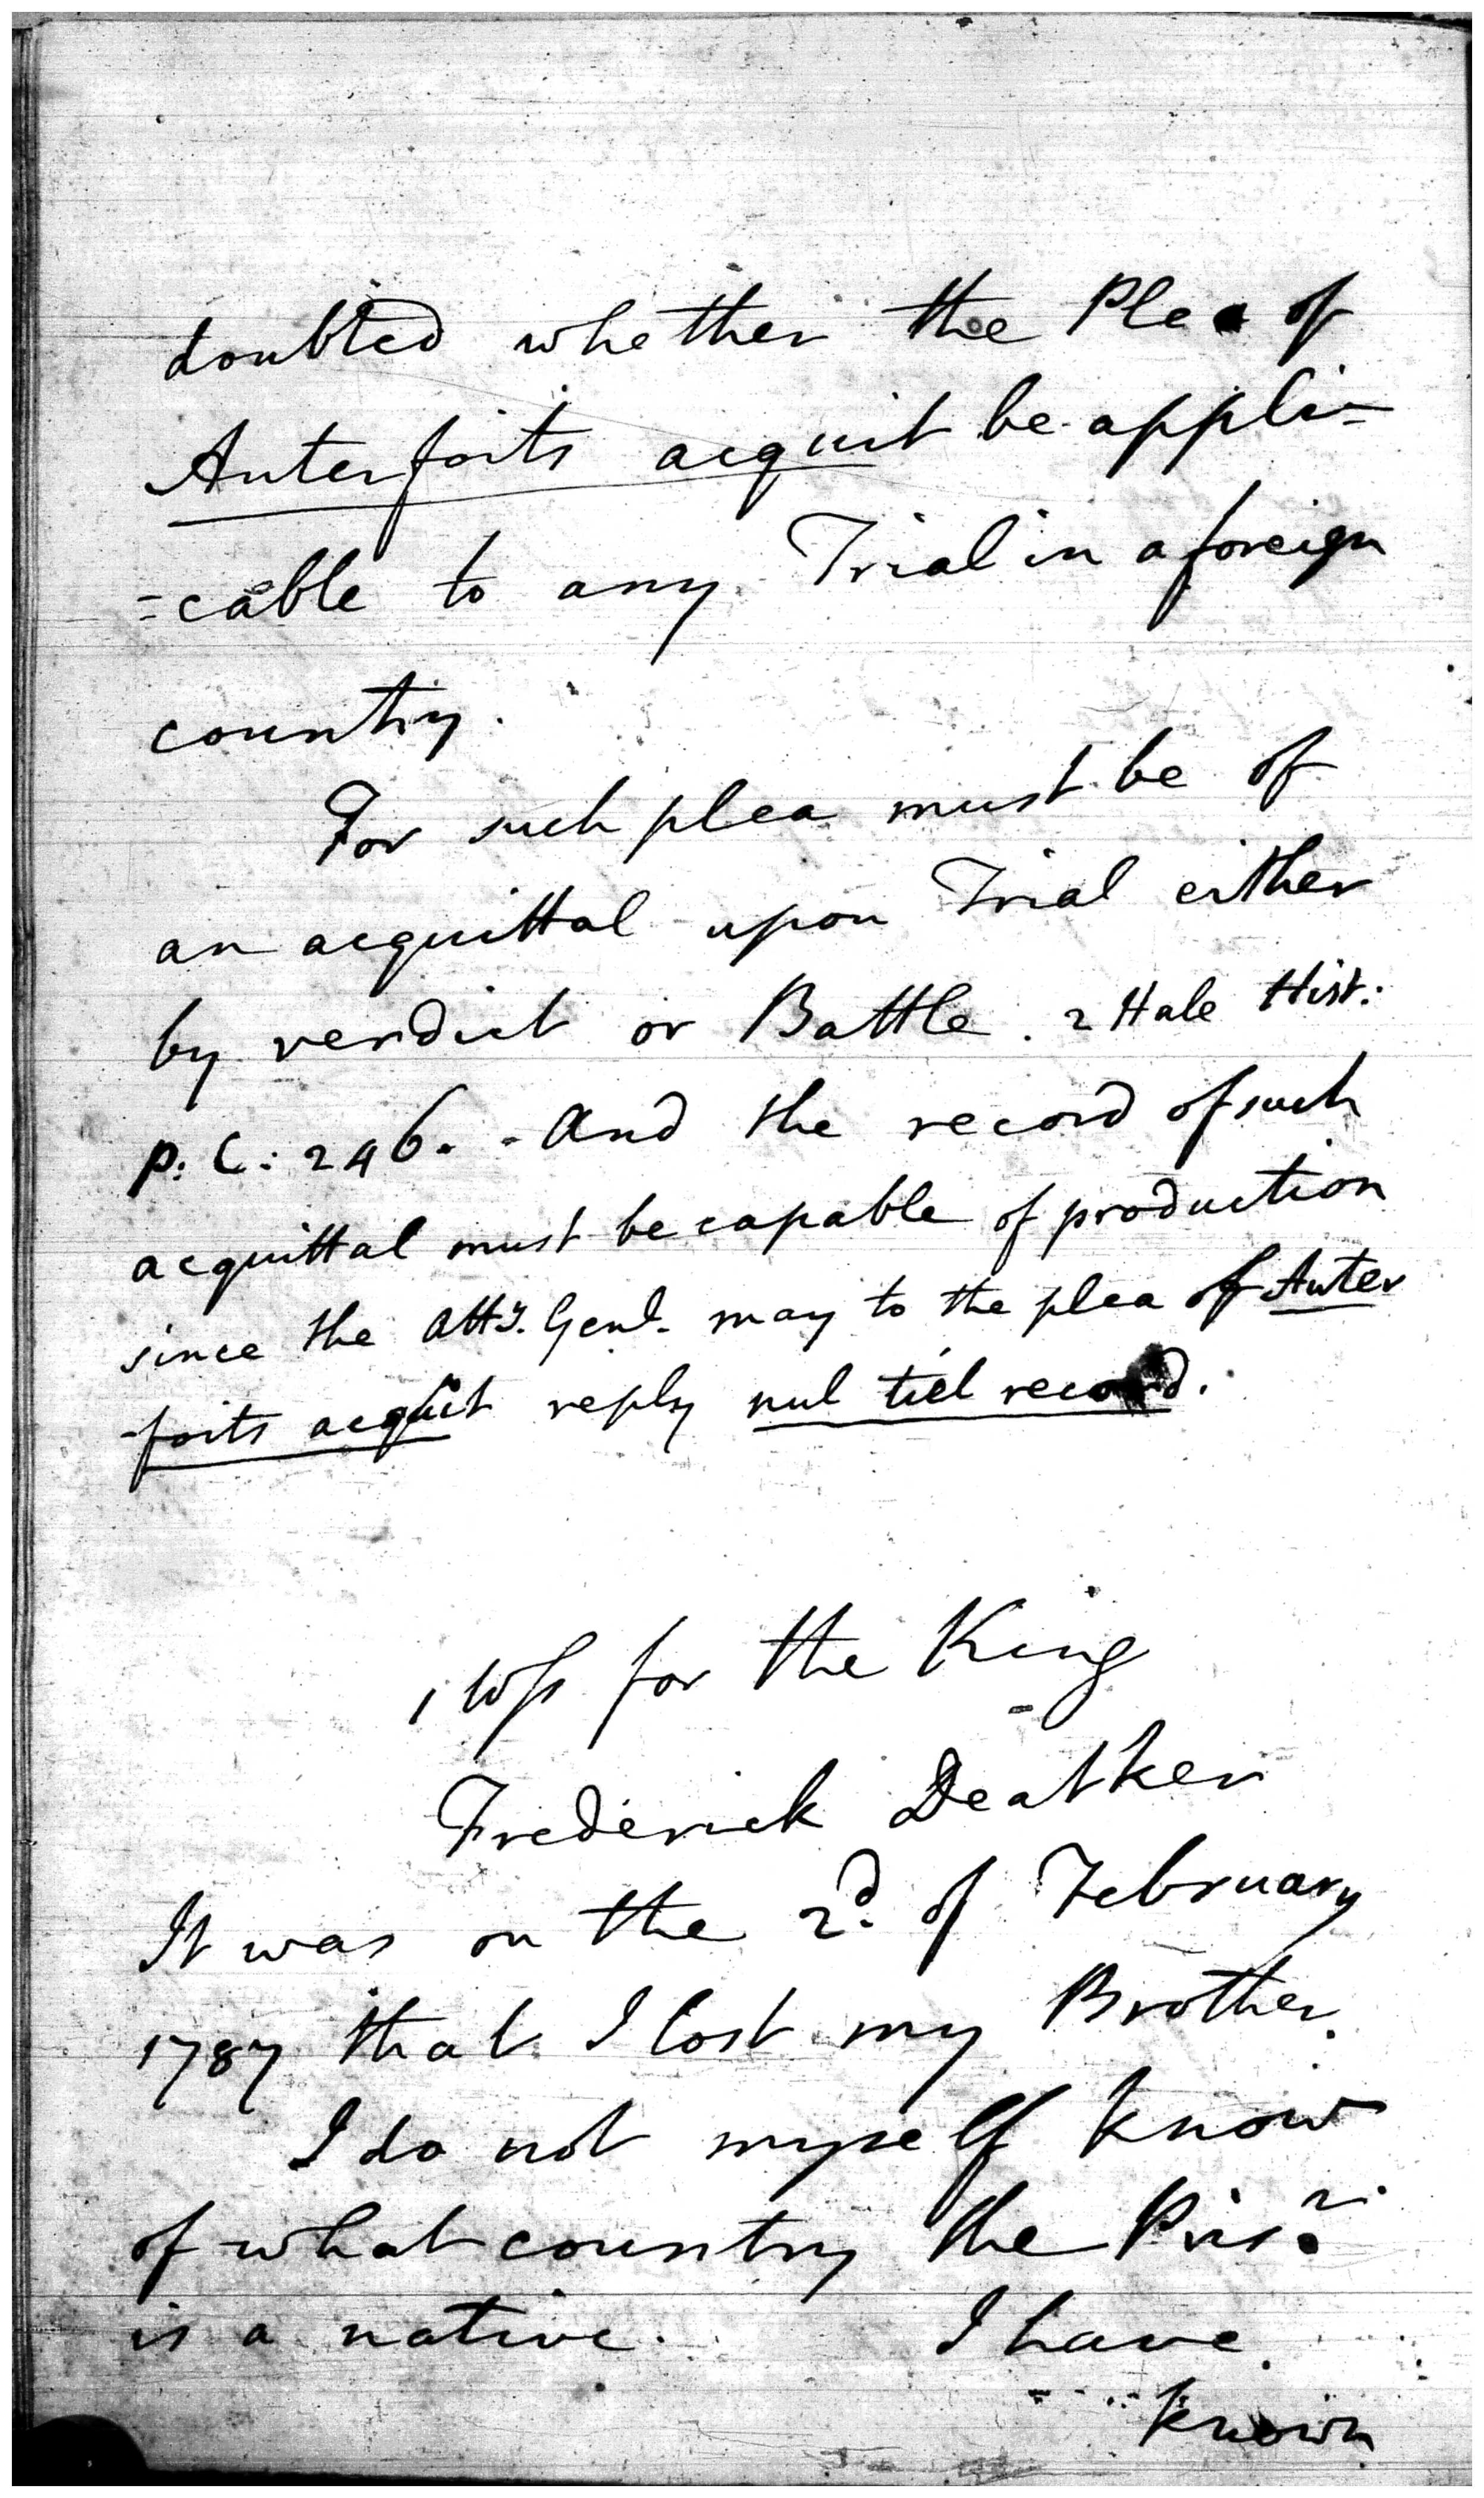 doubted whether the Plea of
Auterfoits acquit be appli=
=cable to any Trial in a foreign
country.
For such plea must be of
an acquittal upon Trial either
by verdict or Battle. 2 Hale Hist:
P: C: 246. - And the record of such
acquittal must be capable of production
since the Atty. Genl. may to the plea of Auter
-foits acquit reply nul tiel record.
1 Wss for the King
Frederick Deatker
It was on the 2d. of February
1787 that I lost my Brother.
I do not myself know
of what country the Prisr.
is a native. I have
known